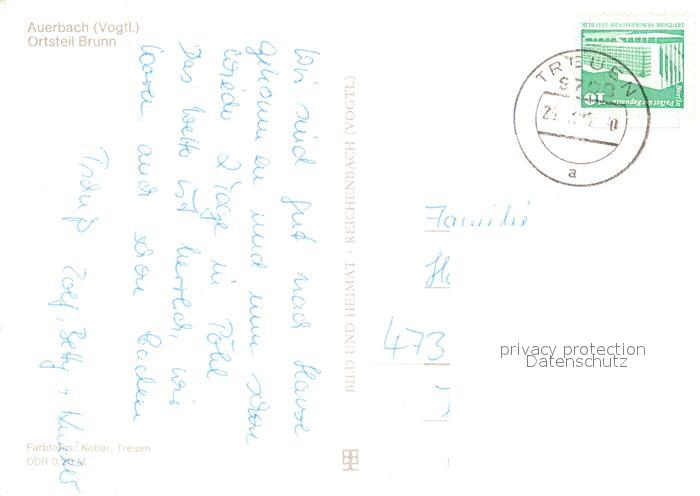 Auerbach (Vogtl.)
Ortsteil Brunn
Wir sind gut nach Hause
gekommen und nun schon
wieder 2 Tage in Pöhl
Das Wetter ist herrlich, wir
waren auch schon baden
Tschüß Rolf, Betty u. Kinder
Farbfotos: Kober, Treuen
DDR 0,20 M
BILD UND HEIMAT · REICHENBACH (VOGTL)
DEUTSCHE DEMOKRATISCHE REPUBLIK
Berlin Palast der Republik
10
TREUEN
a
Familie
473
privacy protection
Datenschutz